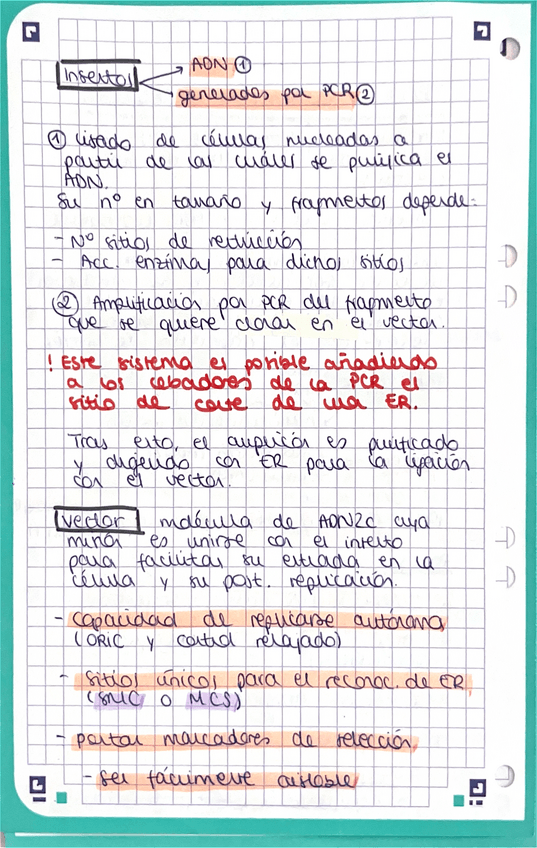 Insertos
ADN ①
generados por PCR ②
① Lisado de células nucleadas a
partir de las cuáles se purifica el
ADN.
Su nº en tamaño y fragmentos depende:
- Nº sitios de restricción
- Acc. enzimas para dichos sitios
② Amplificación por PCR del fragmento
que se quiere clonar en el vector.
! Este sistema es posible añadiendo
a los cebadores de la PCR el
sitio de corte de una ER.
Tras esto, el amplicón es purificado
y digerido con ER para la ligación
con el vector.
Vector molécula de ADN2c cuya
misión es unirse con el inserto
para facilitar su entrada en la
célula y su post. replicación.
- capacidad de replicarse autónoma
(ORIC y control relajado)
- sitios únicos para el reconoc. de ER
(SMC o MCS)
- portar marcadores de selección
- ser fácilmente aislable